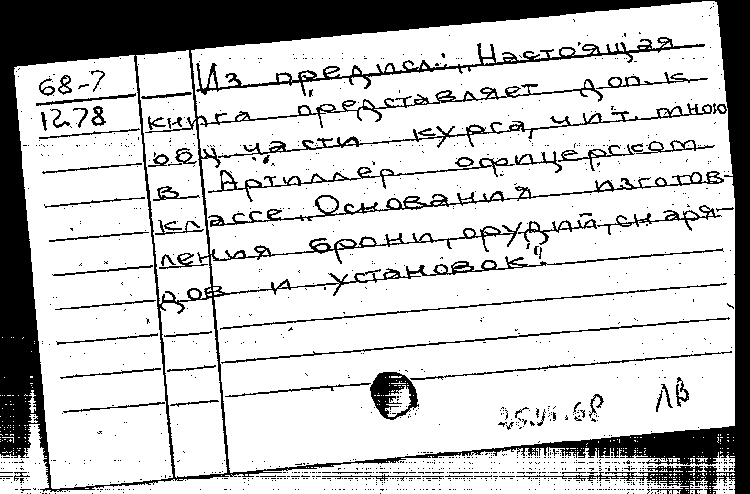 68-7 Из предисл.: „Настоящая
1278 книга представляет доп. к
общ. части курса, чит. мною
в Артиллер. офицерском
классе „Основания изготов-
ления брони, орудий, снаря-
дов и установок".
25.VI.68 ЛВ